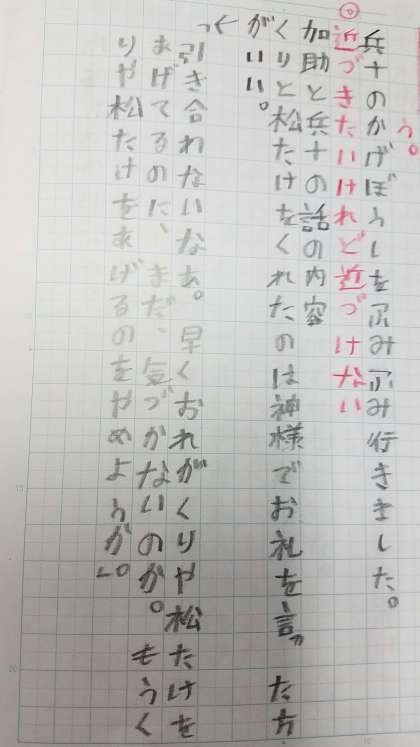 う。
兵十のかげぼうしをふみふみ行きました。
近づきたいけれど近づけない
加助と兵十の話の内容
くりと松たけをくれたのは神様でお礼を言った方
がいい。
引き合わないなあ。早くおれがくりや松たけを
あげてるのに、まだ、気づかないのか。もうく
りや松たけをあげるのをやめようか。